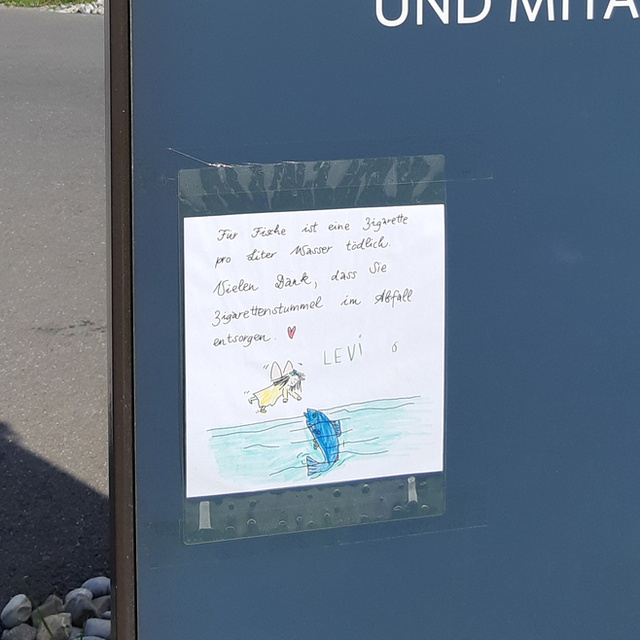 UND MITA
Für Fische ist eine Zigarette
pro Liter Wasser tödlich.
Vielen Dank, dass Sie
Zigarettenstummel im Abfall
entsorgen.
LEVI 6